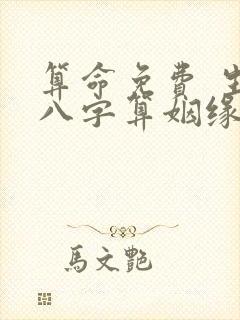 算命免费 生
八字算姻缘
馬文艷